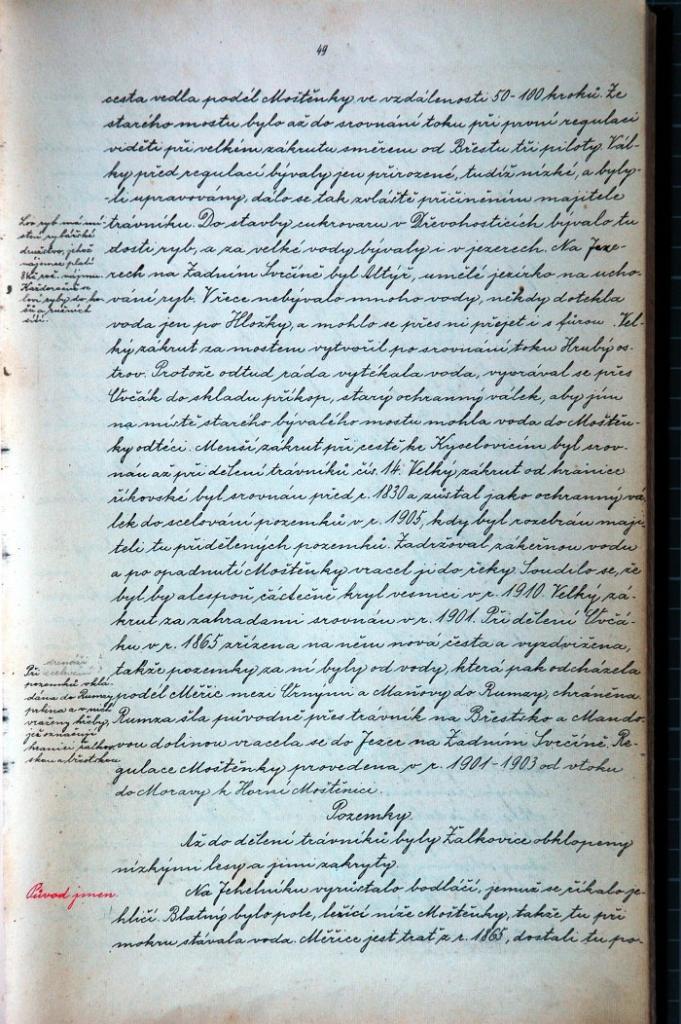 49
cesta vedla podél Moštěnky ve vzdálenosti 50-100 kroků. Ze
starého mostu bylo až do srovnání toku při první regulaci
viděti při velkém zákrutu směrem od Břestu tři piloty. Vál-
ky před regulací bývaly jen přirozené, tudíž nízké, a byly-
li upravovány, dalo se tak zvláště přičiněním majitele
trávníku. Do stavby cukrovaru v Dřevohosticích bývalo tu
dosti ryb, a za velké vody bývaly i v jezerech. Na Jeze-
rech na Zadním Svrčině byl Altýř, umělé jezírko na ucho-
vání ryb. V řece nebývalo mnoho vody, někdy dotekla
voda jen po Hložky, a mohlo se přes ni přejet i s fůrou. Vel-
ký zákrut za mostem vytvořil po srovnání toku Hrubý os-
trov. Protože odtud ráda vytékala voda, vyorával se přes
Ovčák do skladu příkop, starý ochranný válek, aby jím
na místě starého bývalého mostu mohla voda do Moštěn-
ky odtéci. Menší zákrut při cestě ke Kyselovicím byl srov-
nán až při dělení trávníků čís. 14. Velký zákrut od hranice
říkovské byl srovnán před r. 1830 a zůstal jako ochranný vá-
lek do scelování pozemků v r. 1905, kdy byl rozebrán maji-
teli tu přidělených pozemků. Zadržoval zákeřnou vodu
a po opadnutí Moštěnky vracel ji do řeky. Soudilo se, že
byl by alespoň částečně kryl vesnici v r. 1910. Velký zá-
krut za zahradami srovnán v r. 1901. Při dělení Ovčá-
ku v r. 1865 zřízena na něm nová cesta a vyzdvižena,
takže pozemky za ní byly od vody, která pak odcházela
podél Měřic mezi Úrnymi a Maňovy do Rumzy, chráněna.
Rumza šla původně přes trávník na Břestsko a Mando-
vou dolinou vracela se do Jezer na Zadním Svrčině. Re-
gulace Moštěnky provedena v r. 1901-1903 od vtoku
do Moravy k Horní Moštěnici.
Pozemky.
Až do dělení trávníků byly Žalkovice obklopeny
nízkými lesy a jimi zakryty.
Na Jehelníku vyrůstalo bodláčí, jemuž se říkalo je-
hličí. Blatný bylo pole, ležící níže Moštěnky, takže tu při
mokru stávala voda. Měřice jest trať z r. 1865, dostali tu po-
Lov ryb má mí-
stní rybářské
družstvo, jehož
nájemce platí
Kč roč. nájmu.
Každoročně se
loví ryby do ko-
šů a ručních
sítí.
Při
pozemků vklá-
dána do Rumzy
a v něm
vraženy kříby,
jež označují
hranici žalkov-
skou a břestskou
Původ jmen.